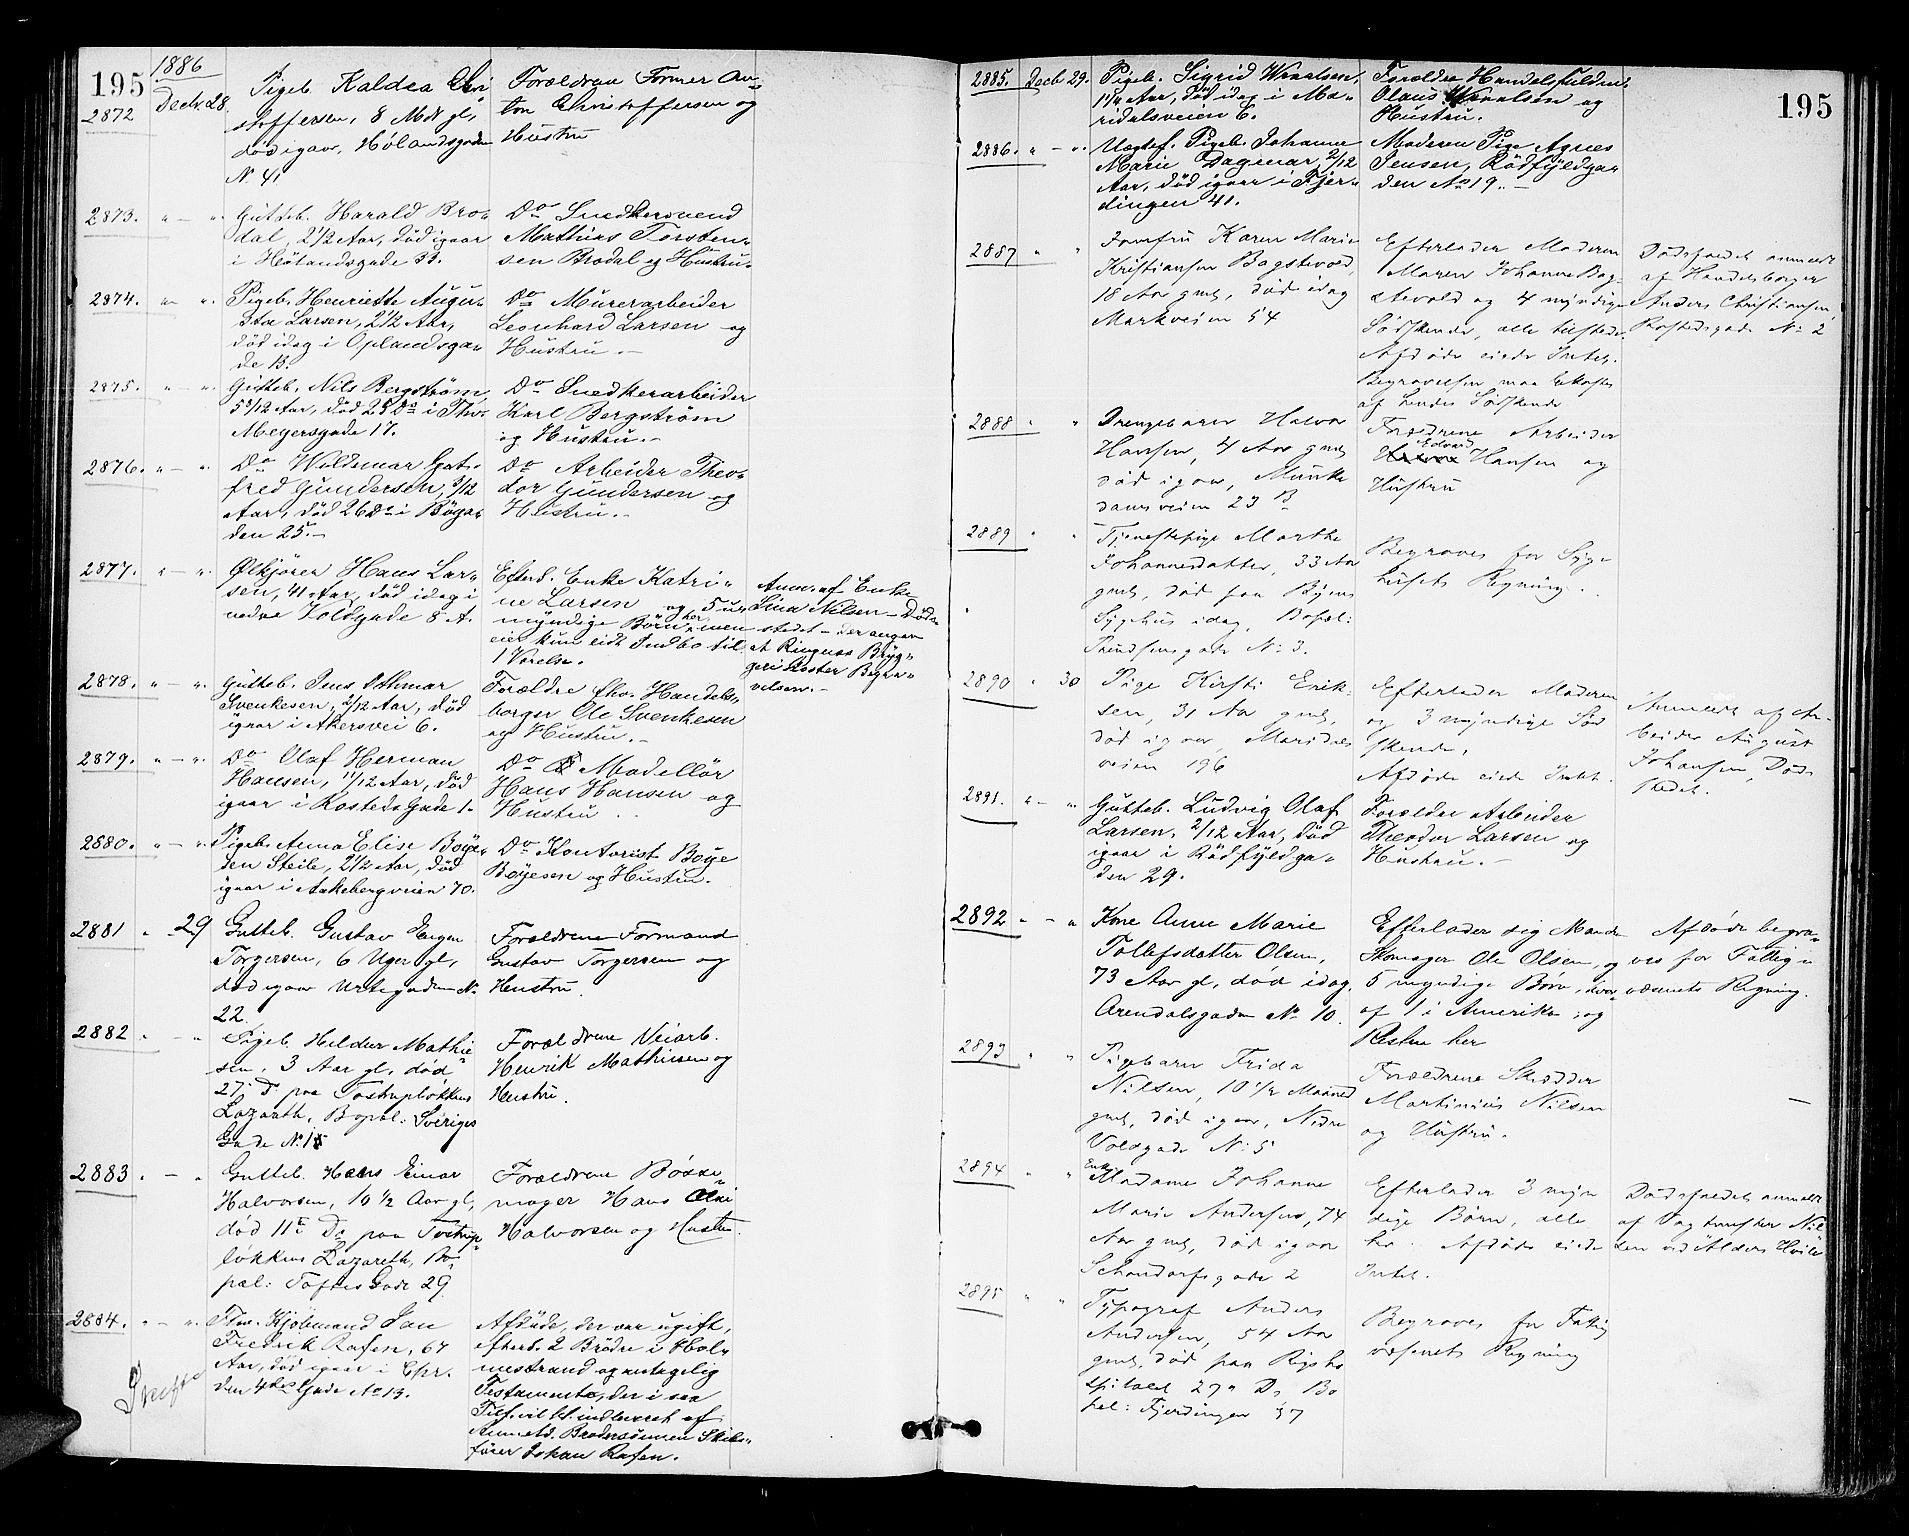 195
1886
2872
Decbr. 28.
Pigeb. Kaldea Chri
stoffersen, 8 Mdr gl,
död igaar, Hölandsgaden
No 41
Forældrene Former An-
ton Christoffersen og
Hustru
2873. " — "
Gutteb. Harald Bro-
dal, 2 1/2 Aar, död igaar
i Hölandsgade 33.
Do Snedkersvend
Mathias Torsten-
sen Brodal og Hustru.
2874. " — "
Pigeb. Henriette Augu-
sta Larsen, 2 1/2 Aar,
död idag i Oplandsga-
de 13.
Do Murerarbeider
Leonhard Larsen og
Hustru.—
2875. " — "
Gutteb. Nils Bergström,
5 3/12 Aar, död 25 Do i Thv.
Meyersgade 17.
Do Snedkerarbeider
Karl Bergström
og Hustru.—
2876. " — "
Do Woldemar Got-
fred Gundersen, 3/12
Aar, död 26 Do i Böga-
den 25.—
Do Arbeider Theo-
dor Gundersen og
Hustru.—
2877. " — "
Ølkjörer Hans Lar-
sen, 41 Aar, död idag i
nedre Voldgade 8 A.
Efterl. Enke Katri-
ne Larsen og 5 u-
myndige Börn her, men
eier kun eidt Indbo til
1 Værelse.
Anm. af Enke
Lina Nilsen — Döds-
stedet — der angav
at Ringnes Bryg-
geri koster Begra-
velsen.—
2878. " — "
Gutteb. Jens Othmar
Svenkesen, 2/12 Aar, död
igaar i Akersvei 6.
Forældre fhv. Handels-
borger Ole Svenkesen
og Hustru.—
2879. " — "
Do Olaf Herman
Hansen, 11/12 Aar, död
igaar i Rosteds Gade 1.
Do Modellör
Hans Hansen og
Hustru . .
2880. " — "
Pigeb. Anna Elise Böye-
sen Steile, 2 1/2 Aar, död
igaar i Aakebergveien 70.
Do Kontorist Böye
Böyesen og Hustru.
2881 " 29
Gutteb. Gustav Eugen
Torgersen, 6 Uger gl,
död igaar Urtegaden No
22.
Forældrene Formand
Gustav Torgersen og
Hustru.
2882 " "
Pigeb. Heldur Mathie
sen, 3 Aar gl, död
27. D paa Tostrupløkkens
Lazareth, Bopæl: Sveriges
Gade No 15
Forældrene Veiarb.
Henrik Mathiesen og
Hustru.
2883 . — "
Gutteb. Hans Einar
Halvorsen, 10 1/2 Aar gl,
död 11te Do paa Tostrup
løkkens Lazareth, Bo-
pæl: Toftes Gade 29
Forældrene Bösse-
mager Hans Olai
Halvorsen og Hustru.
2884. " — "
Skifte
Fhv. Kjöbmand Jan
Fredrik Rafen, 67
Aar, död igaar i Chr.
den 4des Gade No 13.
Afdöde, der var ugift,
efterl. 2 Brödre i Hol-
mestrand og antagelig
Testamente, der i saa
Tilf. vil bl. indleveret af
Anmeld. Brodersönnen Skibs-
förer Johan Rafen.
195
2885. Decb 29.
Pigeb. Sigrid Wraalsen,
1 1/4 Aar, död idag i Ma-
ridalsveien 6.
Forældre Handelsfuldm.
Olaus Wraalsen og
Hustru.
2886. " — "
Uægtef. Pigeb. Johanne
Marie Dagmar, 2/12
Aar, död igaar i Fjer-
dingen 41.
Moderen Pige Agnes
Jensen, Rödfyldga-
den No 19.—
2887 " "
Jomfru Karen Marie
Kristiansen Bagstevold,
18 Aar gml, död idag
Markveien 54
Efterlader Moderen
Maren Johanne Bag-
stevold og 4 myndige
Södskende, alle tilstede.
Afdöde eiede Intet.
Begravelsen maa bekostes
af hendes Södskende
Dödsfaldet anmeldt
af Handelsborger
Anders Christiansen,
Rostedsgade No 2
2888 " "
Drengebarn Halvor
Hansen, 4 Aar gml,
död igaar, Munke
damsveien 23 B
Forældrene Arbeider
Edvard
Hansen og
Hustru
2889 " "
Tjenestepige Marthe
Johannesdatter, 33 Aar
gml, död paa Byens
Sygehus idag, Bopæl:
Trondhjemsgade No 3.
Begraves for Syge
husets Regning.
2890 " 30
Pige Kirsti Erik-
sen, 31 Aar gml,
död igaar, Maridals
veien 196
Efterlader Moderen
og 3 myndige Söd
skende,
Afdöde eiede Intet.
Anmeldt af Ar-
beider August
Johansen, Döds
stedet.
2891. " — "
Gutteb. Ludvig Olaf
Larsen, 2/12 Aar, död
igaar i Rödfyldga-
den 29.
Forældre Arbeider
Theodor Larsen og
Hustru.—
2892 " — "
Kone Anne Marie
Tollefsdatter Olsen,
73 Aar gl, död idag.
Arendalsgaden No 10.
Efterlader sig Manden
Skomager Ole Olsen, og
5 myndige Börn, hvor-
af 1 i Amerika, og
Resten her
Afdöde begra-
ves for Fattig-
væsenets Regning.
2893 " "
Pigebarn Frida
Nilsen, 10 1/2 Maaned
gml, död igaar, Nedre
Voldgade No 5
Forældrene Skrædder
Martinius Nilsen
og Hustru.
2894 " "
Enke
Madame Johanne
Marie Andersen, 74
Aar gml, död igaar
Schandorfsgade 2
Efterlader 3 myn
dige Börn, alle
her. Afdöde eiede
Intet.
Dödsfaldet anmeldt
af Vagtmester Nil
sen ved Alders Hvile
2895 " "
Typograf Anders
Andersen, 54 Aar
gml, död paa Rigsho
spitalet 27de Do Bo
pæl: Fjerdingen 37
Begraves for Fattig
væsenets Regning